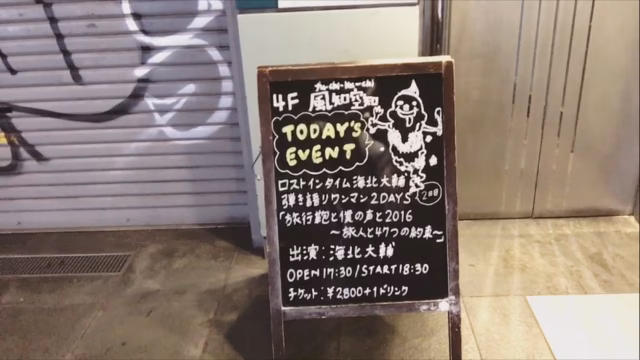 fu-chi-ku-chi
4F 風知空知
TODAY'S
EVENT
ロストインタイム 海北大輔
弾き語りワンマン 2DAYS 2日目
「旅行鞄と僕の声と2016
～旅人と47つの約束～」
出演：海北大輔
OPEN 17:30 / START 18:30
チケット：¥2800+1ドリンク